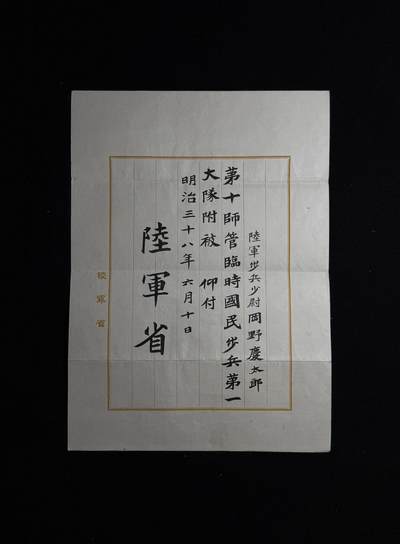 陸軍歩兵少尉岡野慶太郎
第十師管臨時國民歩兵第一
大隊附被 仰付
明治三十八年六月十日
陸軍省
陸軍省